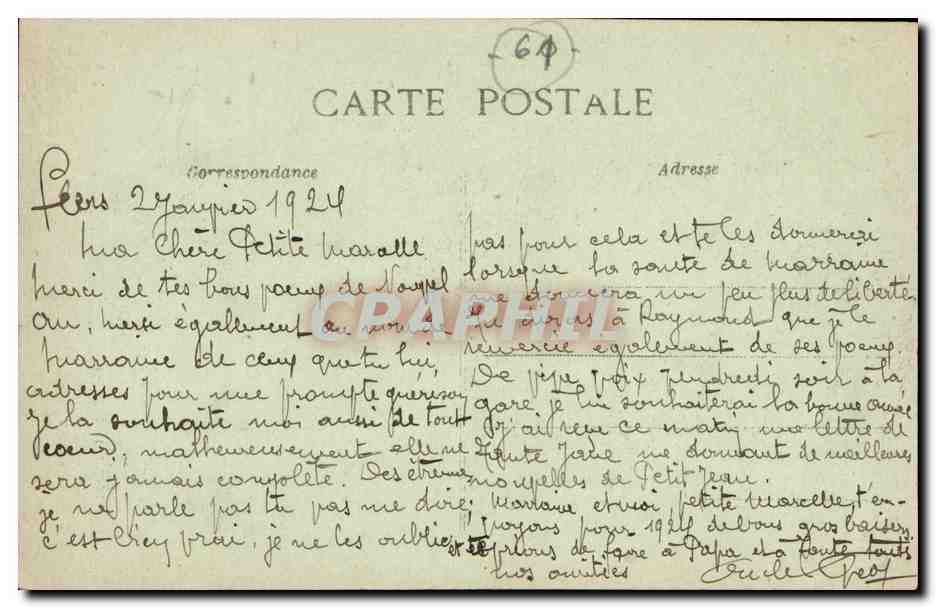 - 61 -
CARTE POSTALE
Correspondance
Adresse
Flers 2 Janvier 1924
Ma Chère Petite Marcelle
Merci de tes bons voeux de Nouvel
An, merci également au nom de
Marraine de ceux que tu lui
adresses pour une prompte guérison
je la souhaite moi aussi de tout
coeur, malheureusement elle ne
sera jamais complète. Des étrennes
je n'en parle pas tu pas me dire
c'est bien vrai, je ne les oublie
pas pour cela et te les donnerai
lorsque la santé de Marraine
me donnera un peu plus de liberté
Tu diras à Raymond que je le
remercie également de ses voeux
De vive voix vendredi soir à la
gare je lui souhaiterai la bonne année
J'ai reçu ce matin une lettre de
Tante Jane me donnant de meilleures
nouvelles de Petit Jean.
Marraine et moi, petite Marcelle, t'en-
voyons pour 1924 de bons gros baisers
et te prions de faire à Papa et à toute tous
nos amitiés
Oncle Geo
CRAPHIL